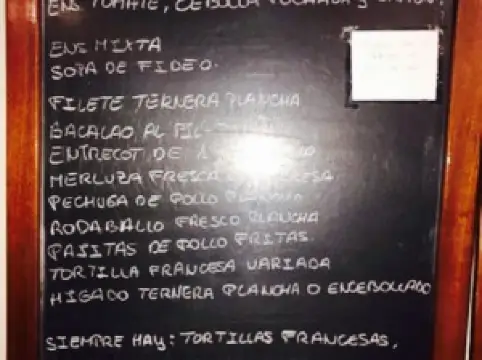 ENS TOMATE, CEBOLLA POCHADA Y
ENS MIXTA
SOPA DE FIDEO.
FILETE TERNERA PLANCHA
BACALAO AL PIL-
ENTRECOT DE
MERLUZA FRESCA
PECHUGA DE POLLO PLANCHA
RODABALLO FRESCO PLANCHA
PATITAS DE POLLO FRITAS.
TORTILLA FRANCESA VARIADA
HIGADO TERNERA PLANCHA O ENCEBOLLADO
SIEMPRE HAY: TORTILLAS FRANCESAS,